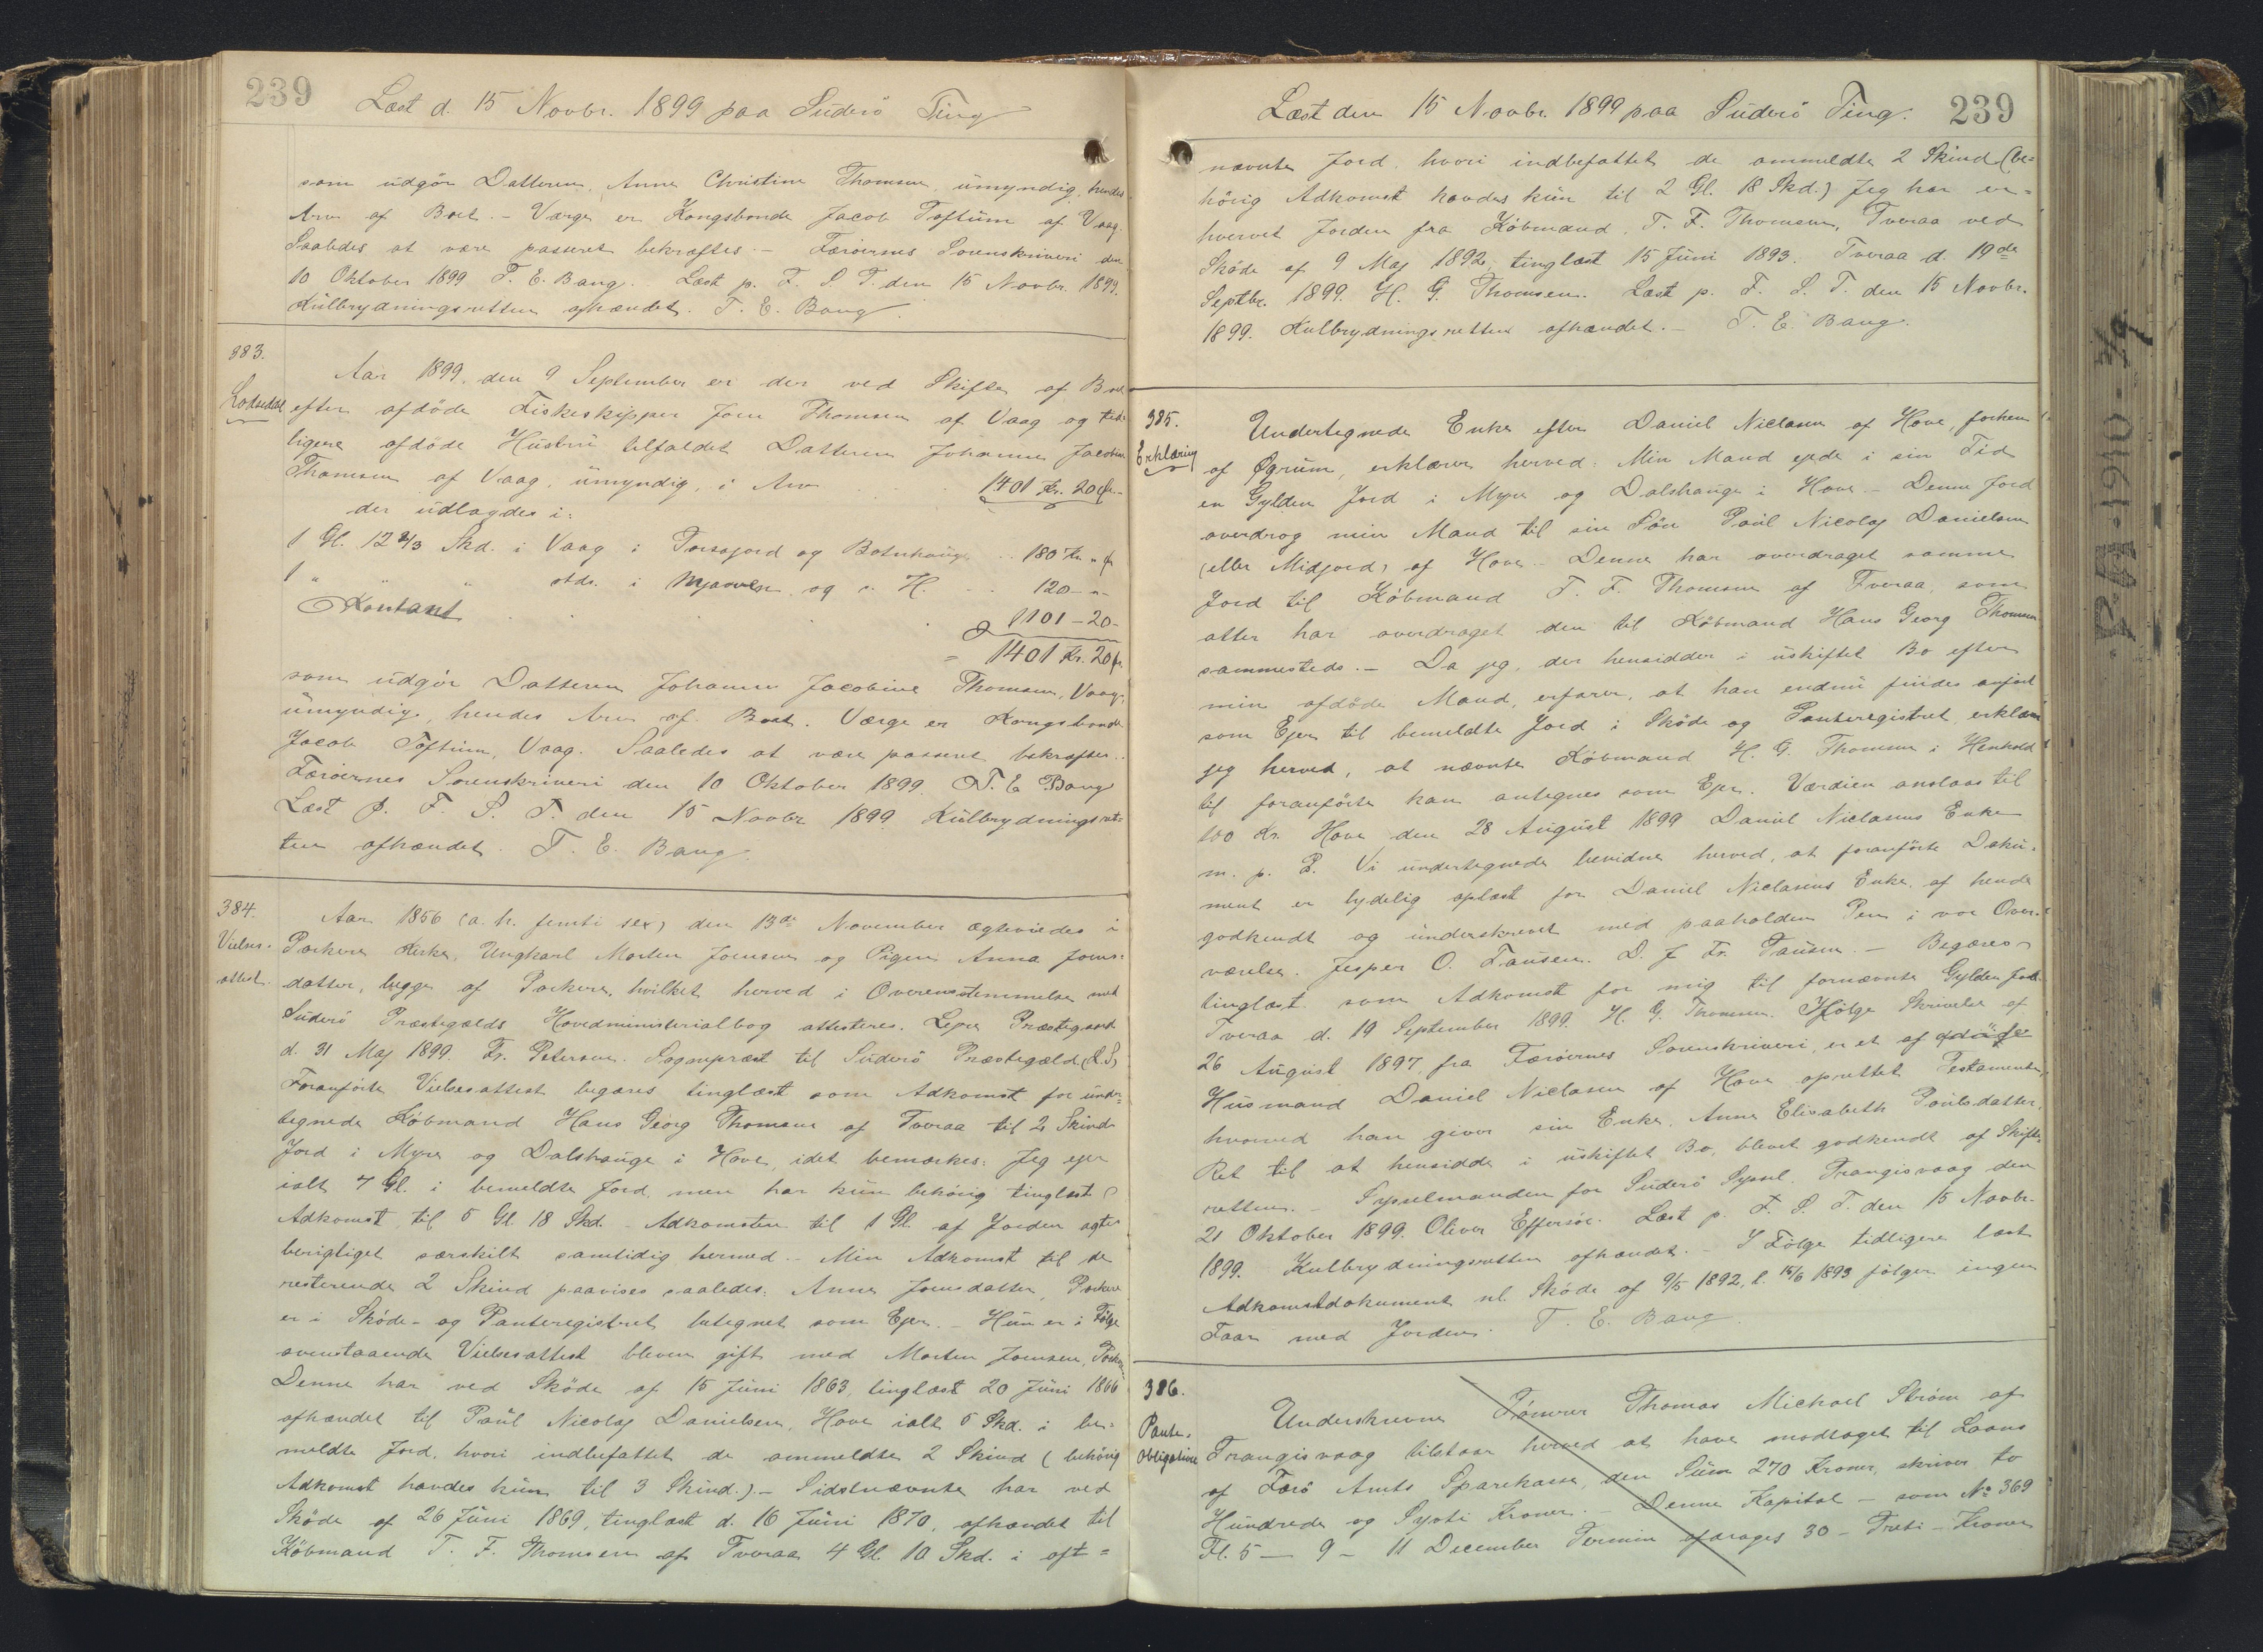 239
Læst d. 15 Novbr. 1899 paa Suderö Ting
som udgör Datteren, Anne Christine Thomsen, umyndig, hendes
Arv af Boet. - Værge er Kongsbonde Jacob Toftum af Vaag.
Saaledes at være passeret bekræftes. - Færöernes Sorenskriveri den
10 Oktober 1899 T. E. Bang. Læst p. F. S. T. den 15 Novbr. 1899.
Kulbrydningsretten afhændet. T. E. Bang.
383.
Lodseddel
Aar 1899, den 9 September er der ved Skifte af Boet
efter afdöde Fiskeskipper Joen Thomsen af Vaag og tid-
ligere afdöde Hustru tilfaldet Datteren Johanne Jacobine
Thomsen af Vaag, umyndig, i Arv 1401 Kr. 20 Ø. -
der udlagdes i:
1 Gl. 12 2/3 Skd. i Vaag i Torsajord og Botnhauge .. 180 Kr. " Ø
1 " " " stds. i Mjaaven, og s. H. .. 120 - " -
Kontant . . . . 1101 - 20 -
= 1401 Kr. 20 Ø.
som udgör Datteren Johanne Jacobine Thomsen, Vaag,
umyndig, hendes Arv af Boet. Værge er Kongsbonde
Jacob Toftum, Vaag. Saaledes at være passeret bekræftes. -
Færöernes Sorenskriveri den 10 Oktober 1899. T. E Bang
Læst p. F. S. T. den 15 Novbr 1899 Kulbrydningsret-
ten afhændet. T. E. Bang.
384.
Vielses-
attest.
Aar 1856 (a. h. femti sex) den 13de November ægteviedes i
Porkere Kirke, Ungkarl Morten Joensen og Pigen Anna Joens-
datter, begge af Porkere, hvilket herved i Overensstemmelse med
Suderö Præstegælds Hovedministerialbog attesteres. Lepra Præstegaard
d. 31 Maj 1899. Fr. Petersen. Sognepræst til Suderö Præstegæld (L.S.)
Foranförte Vielsesattest begæres tinglæst som Adkomst for under-
tegnede Köbmand Hans Georg Thomsen af Tveraa til 2 Skind
Jord i Myre og Dalshauge i Hove, idet bemærkes: Jeg ejer
ialt 7 Gl. i bemeldte Jord, men har kun behörig tinglæst
Adkomst til 5 Gl. 18 Skd. - Adkomsten til 1 Gl. af Jorden agtes
berigtiget særskilt samtidig hermed. - Min Adkomst til de
resterende 2 Skind paavises saaledes: Anne Joensdatter, Porkere
er i Sköde- og Panteregistret betegnet som Ejer. - Hun er i Fölge
ovenstaaende Vielsesattest bleven gift med Morten Joensen, Porkere
Denne har ved Sköde af 15 Juni 1863, tinglæst 20 Juni 1866
afhændet til Poul Nicolaj Danielsen, Hove ialt 5 Skd. i be-
meldte Jord, hvori indbefattet de ommeldte 2 Skind (behörig
Adkomst havdes kun til 3 Skind.). - Sidstnævnte har ved
Sköde af 26 Juni 1869, tinglæst d. 16 Juni 1870, afhændet til
Köbmand T. F. Thomsen af Tveraa 4 Gl. 10 Skd. i oft-
Læst den 15 Novbr. 1899 paa Suderö Ting.
239
nævnte Jord, hvori indbefattet de ommeldte 2 Skind (be-
hörig Adkomst havdes kun til 2 Gl. 18 Skd.) Jeg har er-
hvervet Jorden fra Köbmand, T. F. Thomsen, Tveraa ved
Sköde af 9 Maj 1892, tinglæst 15 Juni 1893. Tveraa d. 19de
Septbr. 1899. H. G. Thomsen. Læst p. F. S. T. den 15 Novbr.
1899. Kulbrydningsretten afhændet. - T. E. Bang.
385.
Erklæring
Undertegnede Enke efter Daniel Niclasen af Hove, forhen
af Øgrum, erklærer herved: Min Mand ejede i sin Tid
en Gylden Jord i Myre og Dalshauge i Hove. - Denne Jord
overdrog min Mand til sin Sön Poul Nicolaj Danielsen
(eller Midjord) af Hove. - Denne har overdraget samme
Jord til Köbmand T. F. Thomsen af Tveraa, som
atter har overdraget den til Köbmand Hans Georg Thomsen
sammesteds. - Da jeg, der hensidder i uskiftet Bo efter
min afdöde Mand, erfarer, at han endnu findes anfört
som Ejer til bemeldte Jord i Sköde og Panteregistret, erklærer
jeg herved, at nævnte Köbmand H. G. Thomsen i Henhold
til foranförte kan antegnes som Ejer. Værdien anslaas til
100 Kr. Hove den 28 August 1899 Daniel Niclasens Enke
m. p. P. Vi undertegnede bevidne herved, at foranförte Doku-
ment er lydelig oplæst for Daniel Niclasens Enke, af hende
godkendt og underskrevet med paaholden Pen i vor Over-
værelse. Jesper O. Tausen. D. J. Fr. Tausen. - Begæres
tinglæst som Adkomst for mig til fornævnte Gylden Jord.
Tveraa d. 19 September 1899. H. G. Thomsen. Ifölge Skrivelse af
26 August 1897, fra Færöernes Sorenskriveri, er et af afdöde
Husmand Daniel Niclasen af Hove oprettet Testamente,
hvorved han giver sin Enke, Anne Elisabeth Poulsdatter,
Ret til at hensidde i uskiftet Bo, blevet godkendt af Skifte-
retten. - Sysselmanden for Suderö Syssel. Trangisvaag den
21 Oktober 1899. Oliver Effersöe. Læst p. F. S. T. den 15 Novbr.
1899. Kulbrydningsretten afhændet. - I Fölge tidligere læst
Adkomstdokument nl. Sköde af 9/5 1892, l. 15/6 1893 fölger ingen
Faar med Jorden. T. E. Bang.
386.
Pante-
obligation
Underskrevne Tömrer Thomas Michael Ström af
Trangisvaag tilstaar herved at have modtaget til Laans
af Færö Amts Sparekasse, den Sum 270 Kroner, skriver to
Hundrede og Syvti Kroner. - Denne Kapital - som No 369
Fl. 5 - 9 - 11 December Termin afdrages 30 - Treti - Kroner